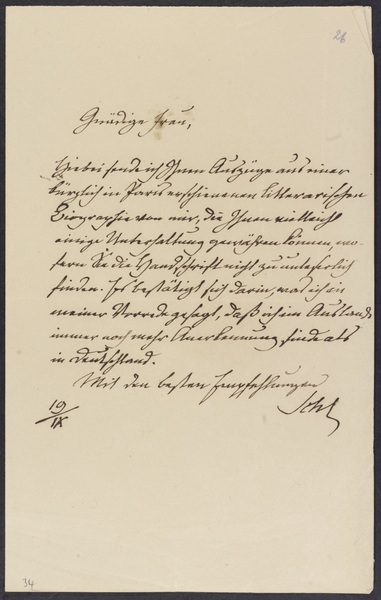 26
Gnädige Frau,
Hiebei sende ich Ihnen Auszüge aus einer
kürzlich in Paris erschienenen litterarischen
Biographie von mir, die Ihnen vielleicht
einige Unterhaltung gewähren können, wo-
fern Sie die Handschrift nicht zu unleserlich
finden. Es bestätigt sich darin, was ich in
meiner Vorrede gesagt, daß ich im Auslande
immer noch mehr Anerkennung finde als
in Deutschland.
Mit den besten Empfehlungen
Schl
19/IX
34